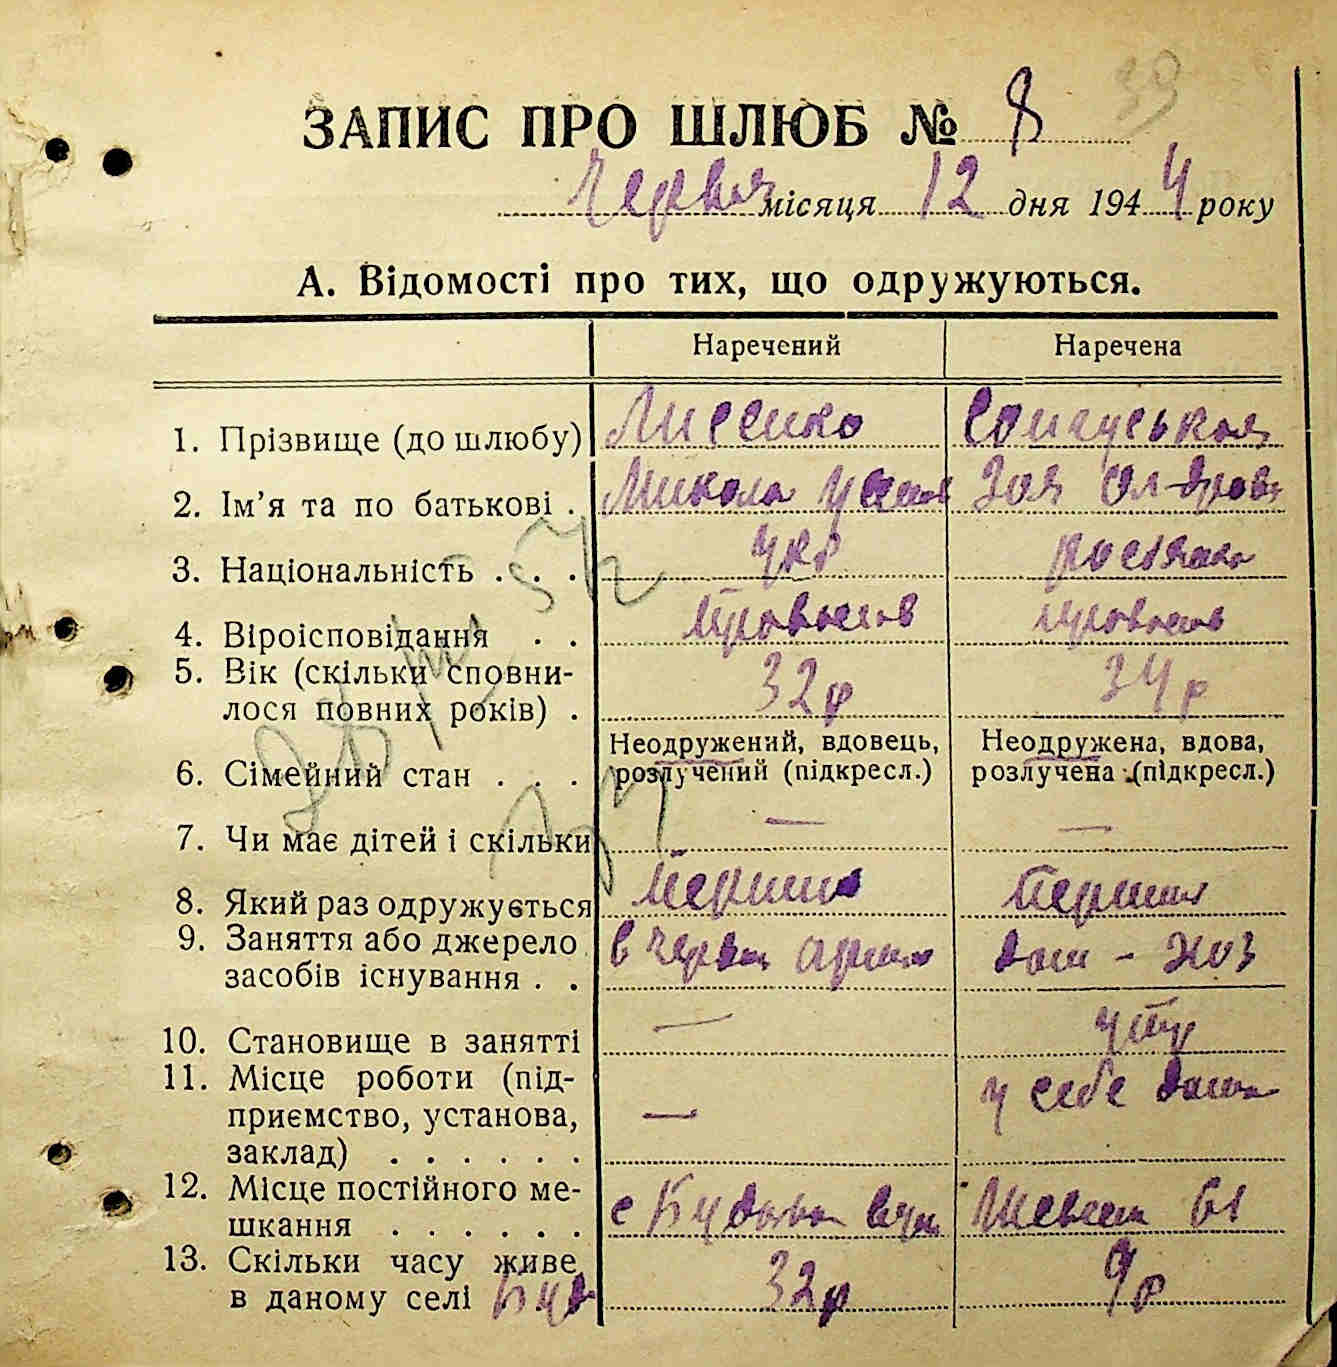 39
ЗАПИС ПРО ШЛЮБ № 8
Червня місяця 12 дня 1944 року
А. Відомості про тих, що одружуються.
Наречений Наречена
1. Прізвище (до шлюбу) Лисенко
2. Ім'я та по батькові . Микола Зоя Ол-дровн
3. Національність . . . укр росіянка
4. Віроісповідання . . Православ православ
5. Вік (скільки сповни-
лося повних років) . 32 р 34 р
Неодружений, вдовець, Неодружена, вдова,
6. Сімейний стан . . . розлучений (підкресл.) розлучена (підкресл.)
7. Чи має дітей і скільки — —
8. Який раз одружується Перший Перший
9. Заняття або джерело в Червон армію дом - хоз
засобів існування . .
10. Становище в занятті —
11. Місце роботи (під- у себе дома
приємство, установа, —
заклад) . . . . . .
12. Місце постійного ме-
шкання . . . . . . с вул Шевчен 61
13. Скільки часу живе
в даному селі 32 р 9 р